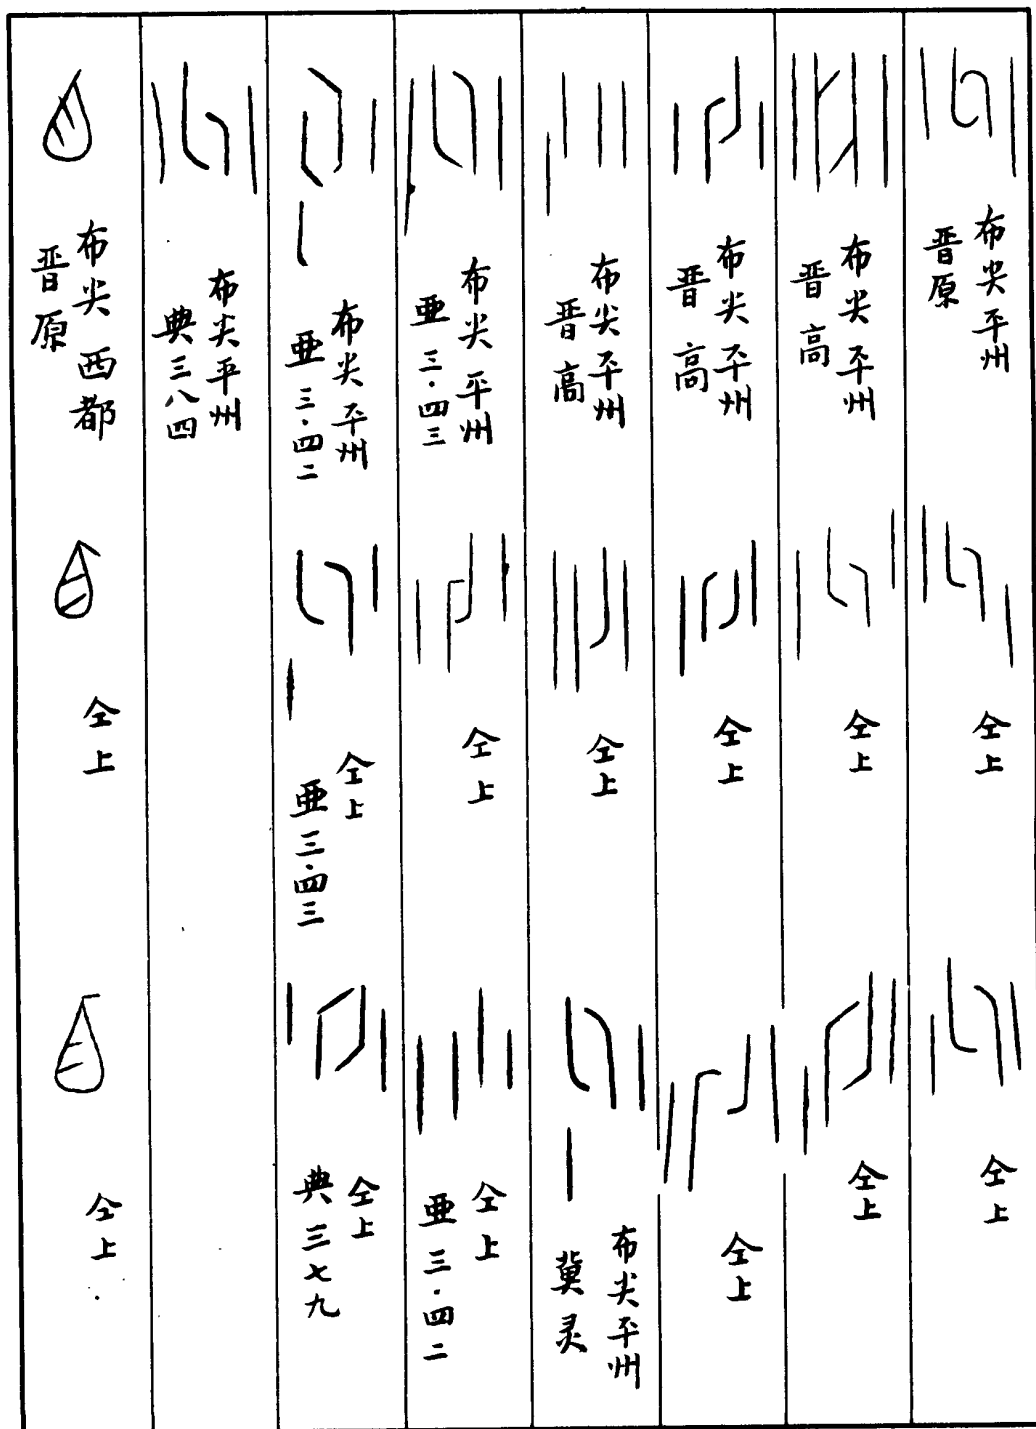 布尖平州
晋原
仝上
仝上
布尖平州
晋高
仝上
仝上
布尖平州
晋高
仝上
仝上
布尖平州
晋高
仝上
布尖平州
冀灵
布尖平州
亜三·四三
仝上
仝上
亜三·四二
布尖平州
亜三·四二
仝上
亜三·四三
仝上
典三七九
布尖平州
典三八四
布尖西都
晋原
仝上
仝上